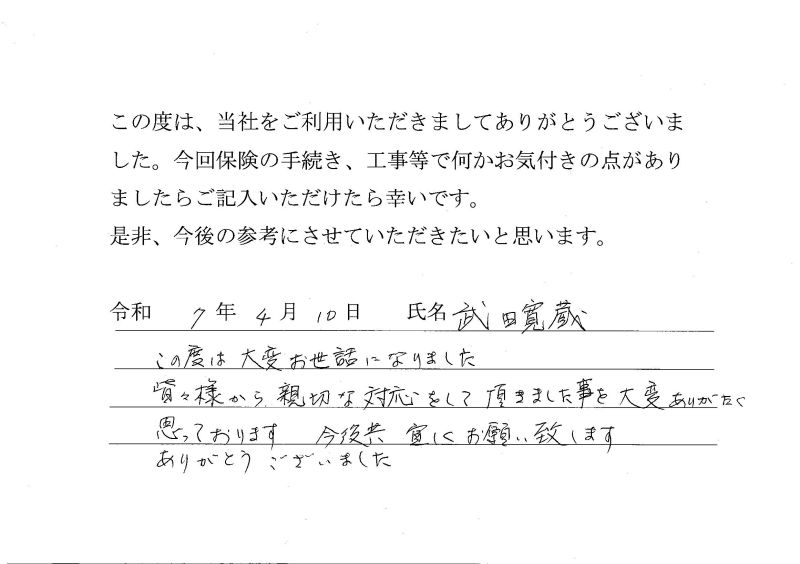 この度は、当社をご利用いただきましてありがとうございま
した。今回保険の手続き、工事等で何かお気付きの点があり
ましたらご記入いただけたら幸いです。
是非、今後の参考にさせていただきたいと思います。
令和 7 年 4 月 10 日 氏名 武田寛蔵
この度は大変お世話になりました
皆々様から親切な対応をして頂きました事を大変ありがたく
思っております 今後共 宜しくお願い致します
ありがとうございました